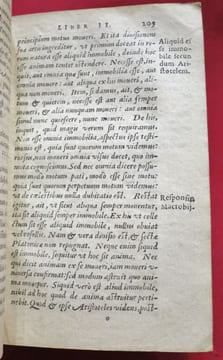 LIBER II. 209
principium motus moueri. Et ita diuisione
sua artu ingreditur, ut primum doceat in re-
rum natura esse aliquid immobile, deinde hoc
esse animam tentet ostendere. Necesse est, in-
quit, aut omnia quæ sunt, immobilia esse, aut
omnia moueri, aut aliqua ex his moueri, ali-
qua non moueri. Item, si damus, ait, & mo-
tum & quietem, necesse est aut alia semper
moueri, & alia nunquam moueri: aut omnia
simul nunc quiescere, nunc moueri. De his,
inquit, quid magis uerum sit requiramus.
Non esse omnia immobilia, aspectus ipse testi-
monio est, quia sunt quorum motum uidemus:
rursus, non moueri omnia uisus docet, quo im-
mota cognoscimus. Sed nec omnia dicere possu-
mus modo motum pati, modo esse sine motu:
quia sunt quorum perpetuum motum uidemus:
ut de cœlestibus nulla dubitatio est. Restat
igitur, ait, ut sicut aliqua semper mouentur,
ita sit aliquid semper immobile. Ex his ut colle-
ctum sit esse aliquid immobile, nullus obuiat
uel refellit. Nam & uera diuisio est, & sectæ
Platonicæ non repugnat. Neque enim si quid
est immobile, sequitur ut hoc sit anima. Nec
qui dicit animam ex se moueri, iam moueri u-
niuersa confirmat: sed modum astruit quo ani-
ma mouetur. Si quid uerò est aliud immobile,
nihil ad hoc quod de anima astruitur perti-
nebit. Quod & ipse Aristoteles uidens, post-
Aliquid es
se immo-
bile secun
dum Ari-
stotelem.
Responsio
Macrobij.